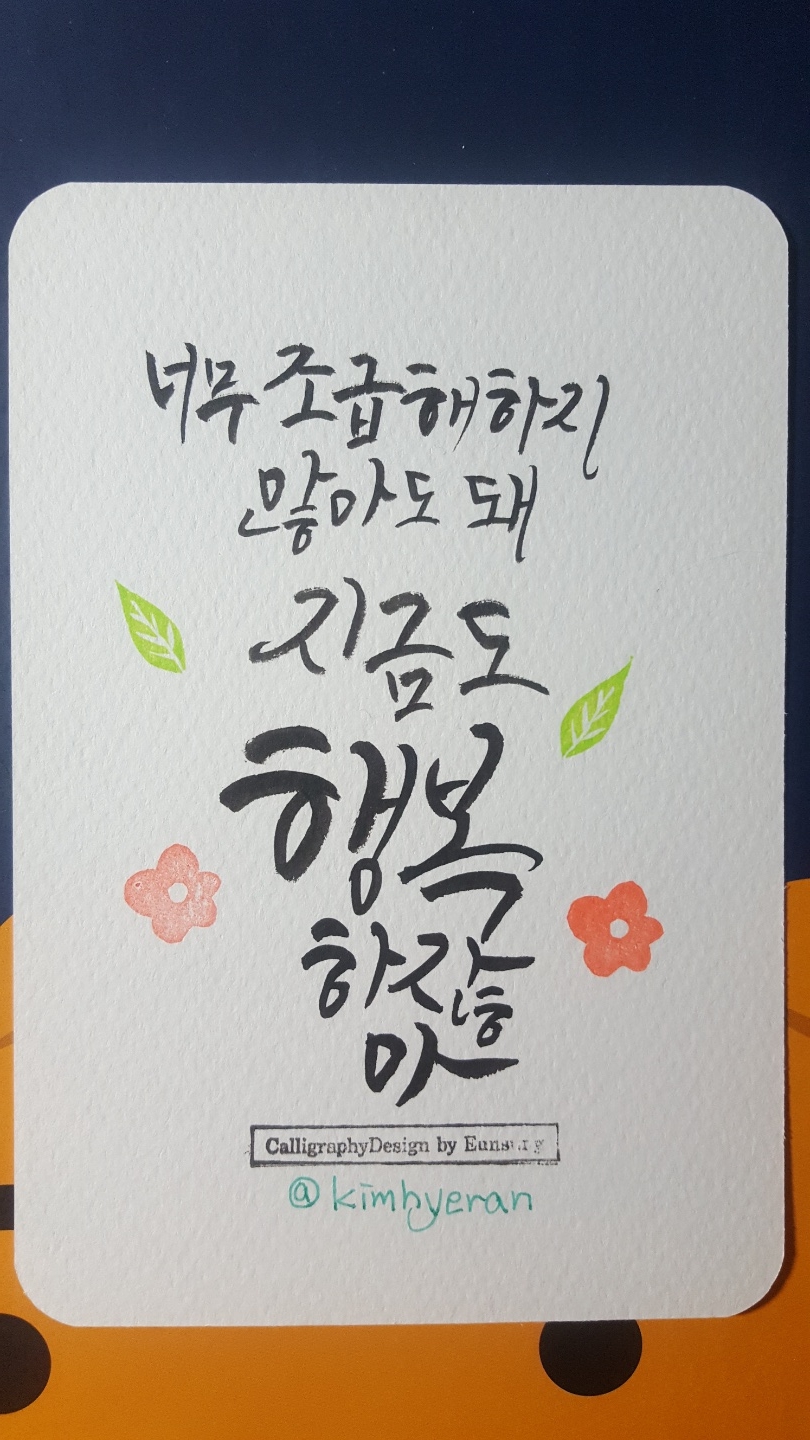 너무 조급해하지
않아도 돼
지금도
행복
하잖
아
CalligraphyDesign by
@kimhyeran